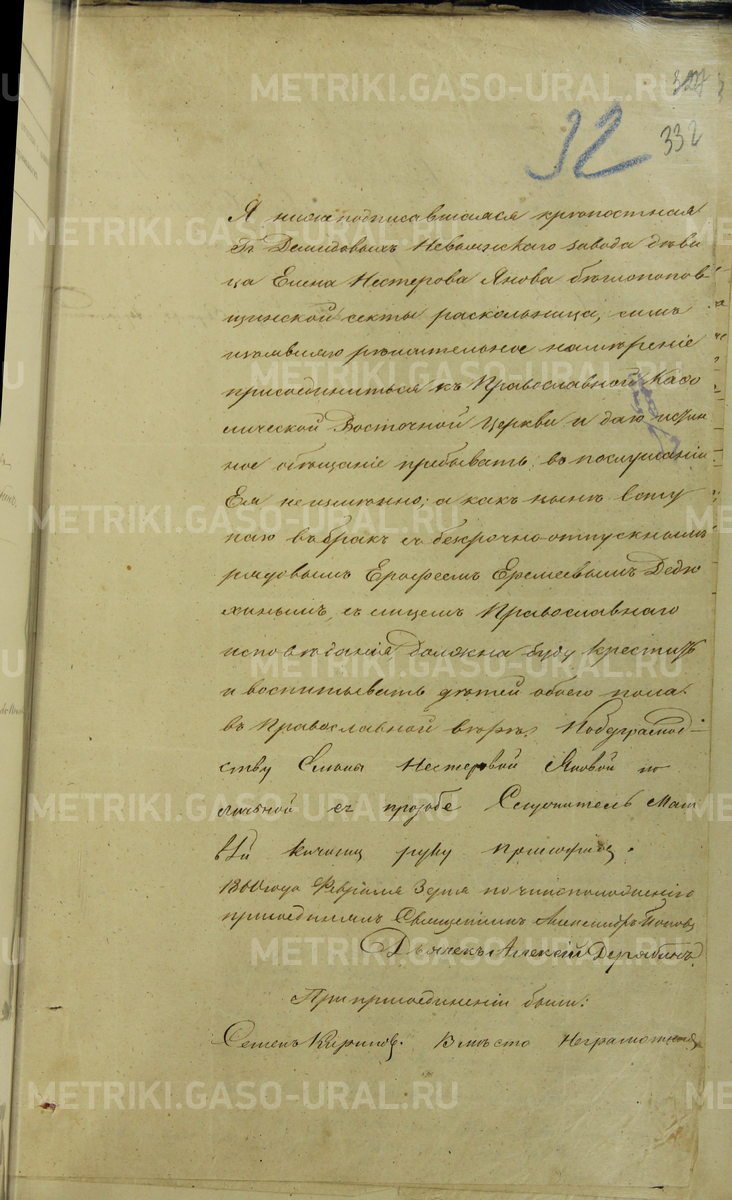 327
32
332
Я нижеподписавшаяся крѣпостная
Гг Демидовыхъ Невьянскаго завода дѣви
ца Елена Нестерова Янова бѣглопопов
щинской секты раскольница, симъ
изъявляю рѣшительное намѣреніе
присоединиться къ Православной Каѳо
лической Восточной Церкви и даю
ное обѣщаніе пребывать въ послушаніи
Ея неизмѣнно; а какъ нынѣ всту
паю въ бракъ съ безсрочно-отпускнымъ
рядовымъ Ерофеемъ Еремеевымъ Дедю
хинымъ, съ лицемъ Православнаго
исповѣданія, должна буду крестить
и воспитывать дѣтей обоего пола
въ Православной вѣрѣ.
ству Елены Нестеровой Яновой по
личной ея прозбе Матв
ѣй руку приложилъ.
1860 года Февраля 3 дня по чиноположенію
присоединялъ Священникъ Александръ Поповъ
Дьячекъ Алексій Дерябинъ.
При присоединеніи были:
Семенъ Кириловъ. Вмѣсто
METRIKI.GASO-URAL.RU